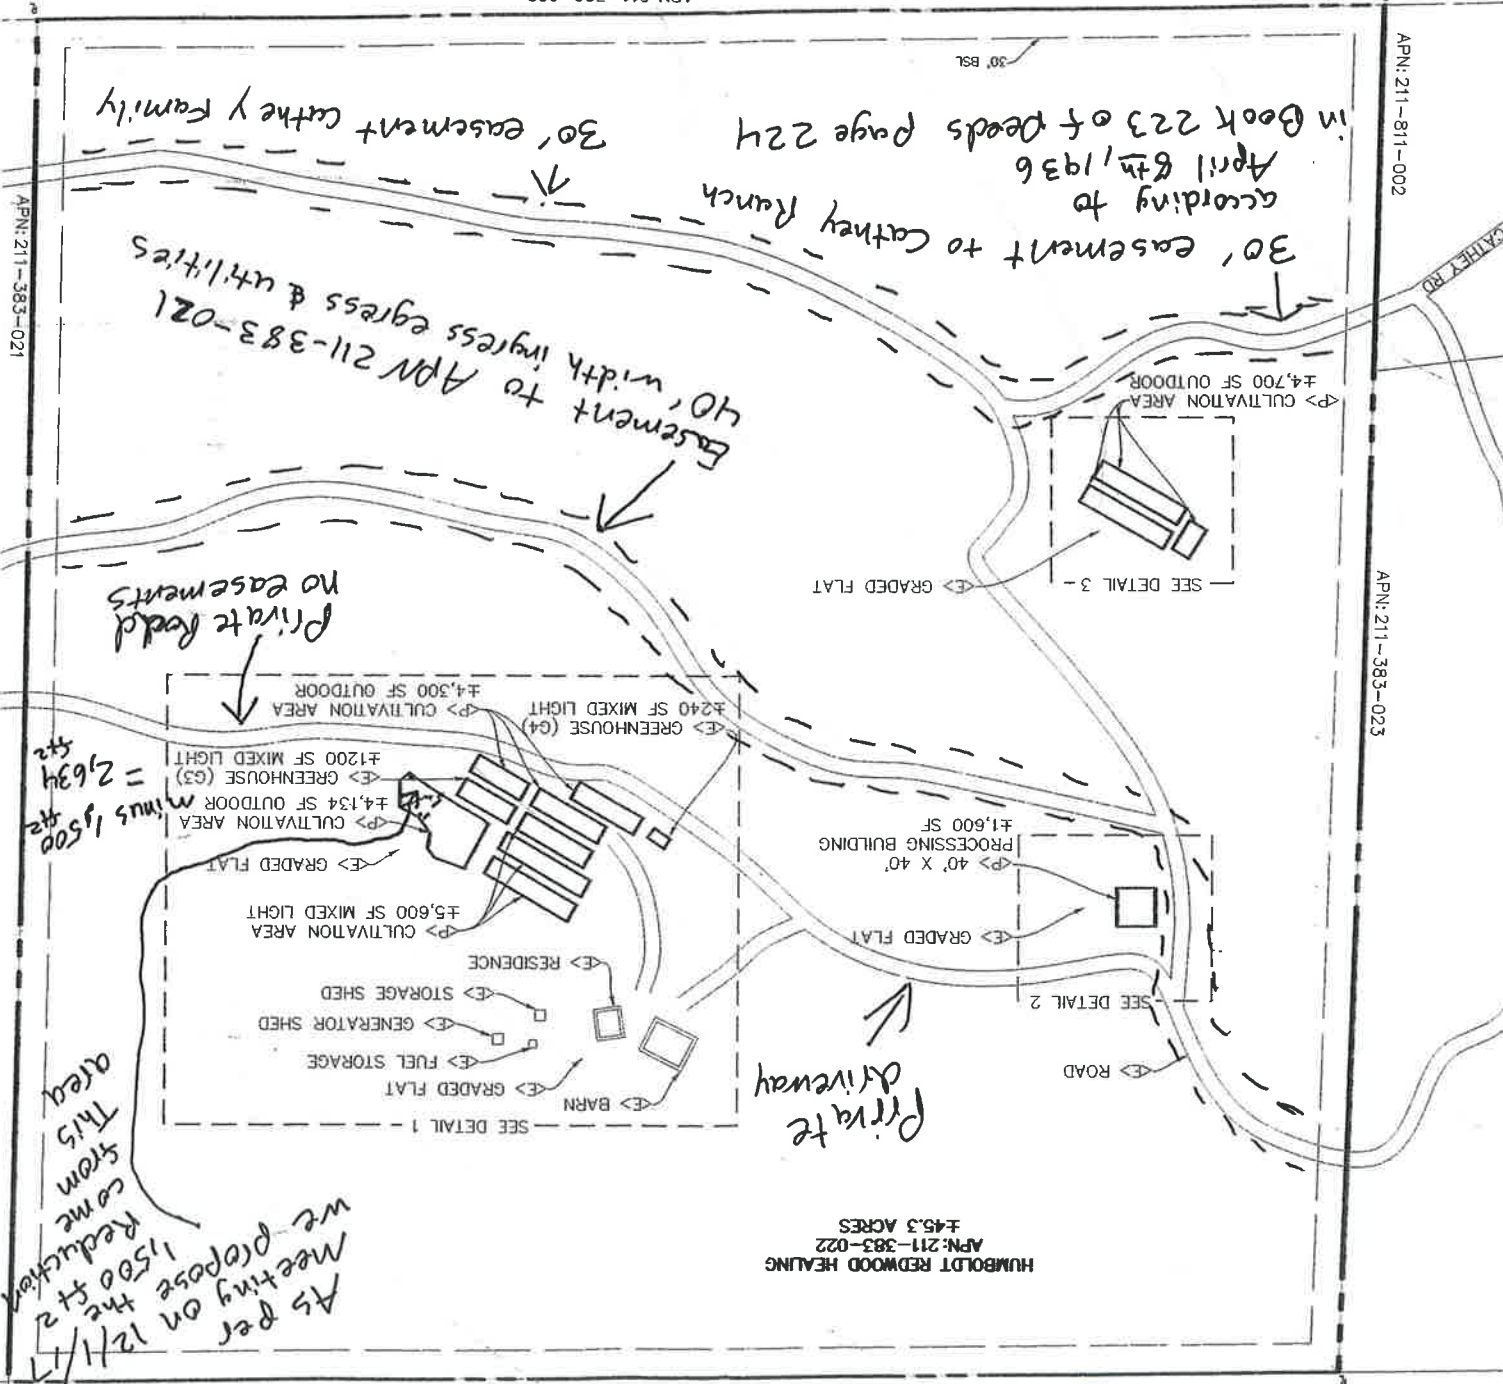 As per
meeting on 12/1/17
we propose the
1,500 ft2
Reduction
come
from
This
area
HUMBOLDT REDWOOD HEALING
APN: 211-383-022
±45.3 ACRES
Private
driveway
<E> ROAD
SEE DETAIL 2
<E> GRADED FLAT
<P> 40' X 40'
PROCESSING BUILDING
±1,600 SF
SEE DETAIL 1
<E> BARN
<E> GRADED FLAT
<E> FUEL STORAGE
<E> GENERATOR SHED
<E> STORAGE SHED
<E> RESIDENCE
<P> CULTIVATION AREA
±5,600 SF MIXED LIGHT
<E> GRADED FLAT
<P> CULTIVATION AREA
±4,134 SF OUTDOOR
minus 1,500 ft2
= 2,634
ft2
<E> GREENHOUSE (G3)
±1200 SF MIXED LIGHT
<E> GREENHOUSE (G4)
±240 SF MIXED LIGHT
<P> CULTIVATION AREA
±4,300 SF OUTDOOR
Private Road
no easements
SEE DETAIL 3
<E> GRADED FLAT
<P> CULTIVATION AREA
±4,700 SF OUTDOOR
Easement to APN 211-383-021
40' width ingress egress & utilities
30' easement to Cathey Ranch
according to
April 8th, 1936
in Book 223 of Deeds page 224
30' easement Cathey Family
30' BSL
CATHEY RD
APN: 211-383-023
APN: 211-811-002
APN: 211-383-021